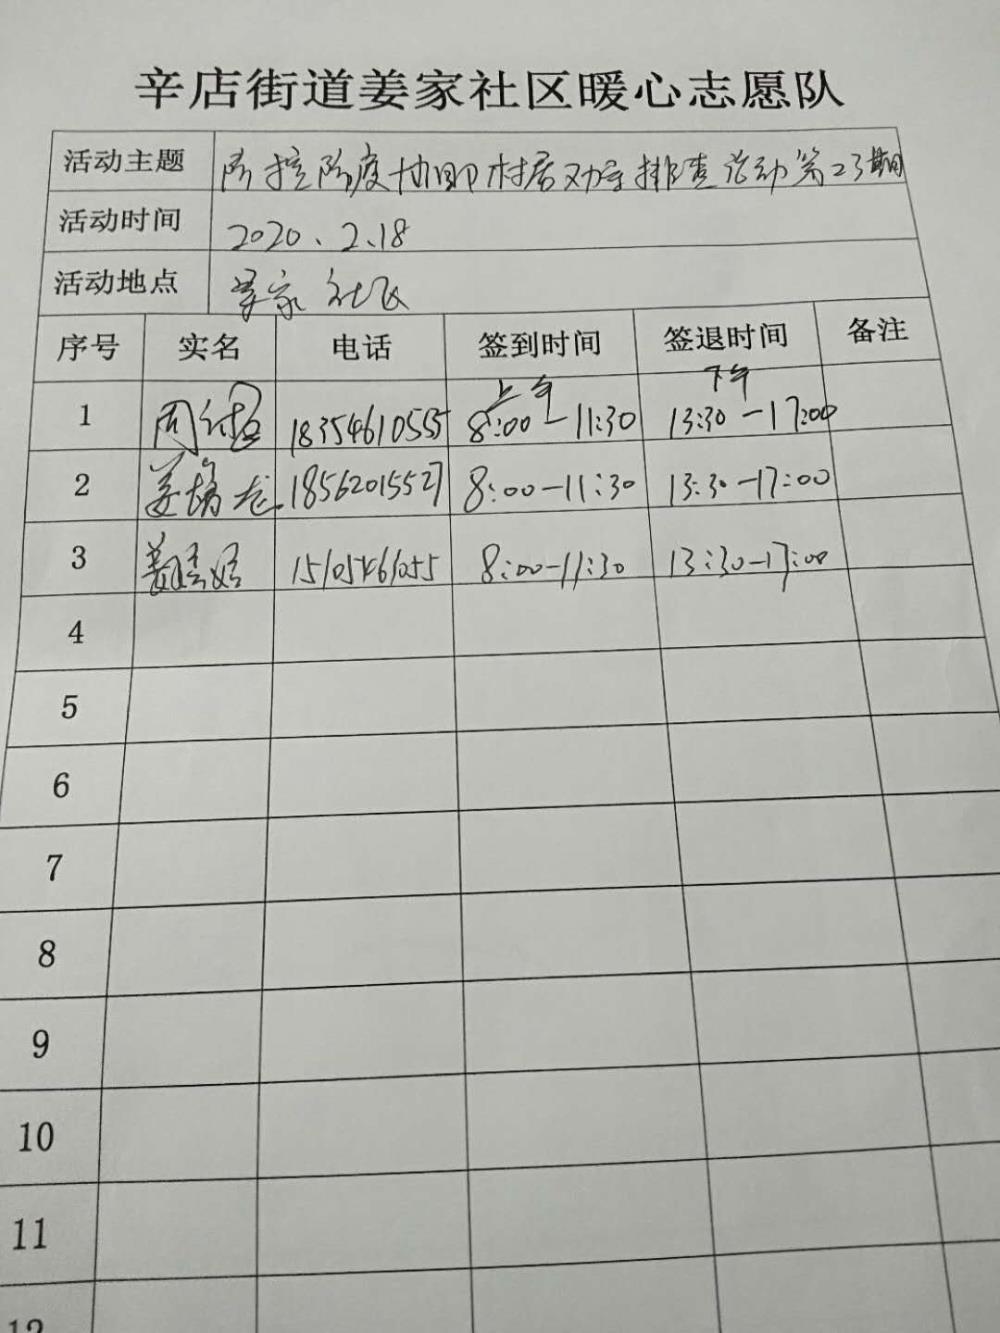 辛店街道姜家社区暖心志愿队
活动主题 防控防疫协助村居劝导排查活动第23期
活动时间 2020.2.18
活动地点 姜家社区
序号 实名 电话 签到时间 签退时间 备注
上午 下午
1 周 18354610555 8:00-11:30 13:30-17:00
2 姜 龙 18562015527 8:00-11:30 13:30-17:00
3 15105461055 8:00-11:30 13:30-17:00
4
5
6
7
8
9
10
11
12